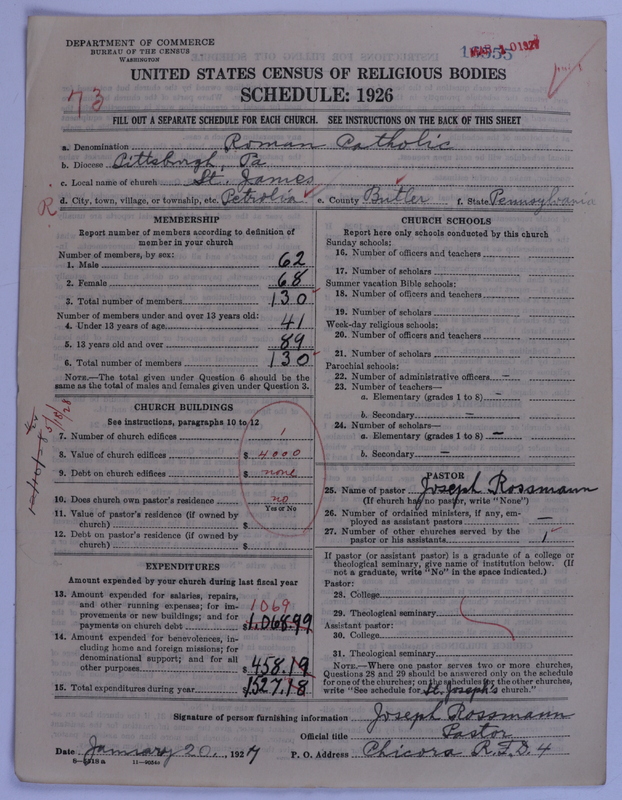 DEPARTMENT OF COMMERCE
BUREAU OF THE CENSUS
WASHINGTON
MAR 10 1927
UNITED STATES CENSUS OF RELIGIOUS BODIES
73
SCHEDULE: 1926
FILL OUT A SEPARATE SCHEDULE FOR EACH CHURCH. SEE INSTRUCTIONS ON THE BACK OF THIS SHEET
a. Denomination Roman Catholic
b. Diocese Pittsburgh, Pa
c. Local name of church St. James
R d. City, town, village, or township, etc. Petrolia e. County Butler f. State Pennsylvania
MEMBERSHIP
Report number of members according to definition of
member in your church
Number of members, by sex:
1. Male 62
2. Female 68
3. Total number of members 130
Number of members under and over 13 years old:
4. Under 13 years of age 41
5. 13 years old and over 89
6. Total number of members 130
NOTE.—The total given under Question 6 should be the
same as the total of males and females given under Question 3.
CHURCH BUILDINGS
See instructions, paragraphs 10 to 12
7. Number of church edifices 1
8. Value of church edifices $ 4000
9. Debt on church edifices $ none
10. Does church own pastor's residence no
Yes or No
11. Value of pastor's residence (if owned by
church) $
12. Debt on pastor's residence (if owned by
church) $
EXPENDITURES
Amount expended by your church during last fiscal year
13. Amount expended for salaries, repairs,
and other running expenses; for im-
provements or new buildings; and for
payments on church debt 1069 $1,068.99
14. Amount expended for benevolences, in-
cluding home and foreign missions; for
denominational support; and for all
other purposes $458.19
15. Total expenditures during year $1,527.18
CHURCH SCHOOLS
Report here only schools conducted by this church
Sunday schools:
16. Number of officers and teachers
17. Number of scholars
Summer vacation Bible schools:
18. Number of officers and teachers
19. Number of scholars
Week-day religious schools:
20. Number of officers and teachers
21. Number of scholars
Parochial schools:
22. Number of administrative officers –
23. Number of teachers—
a. Elementary (grades 1 to 8) –
b. Secondary –
24. Number of scholars—
a. Elementary (grades 1 to 8) –
b. Secondary –
PASTOR
25. Name of pastor Joseph Rossmann
(If church has no pastor, write "None")
26. Number of ordained ministers, if any, em-
ployed as assistant pastors –
27. Number of other churches served by the
pastor or his assistants 1
If pastor (or assistant pastor) is a graduate of a college or
theological seminary, give name of institution below. (If
not a graduate, write "No" in the space indicated.)
Pastor:
28. College
29. Theological seminary
Assistant pastor:
30. College
31. Theological seminary
NOTE.—Where one pastor serves two or more churches,
Questions 28 and 29 should be answered only on the schedule
for one of the churches; on the schedules for the other churches,
write "See schedule for St. Joseph's church."
Signature of person furnishing information Joseph Rossmann
Official title Pastor
Date January 20, 1927 P. O. Address Chicora R.F.D. 4
8—5518 a 11—9054a